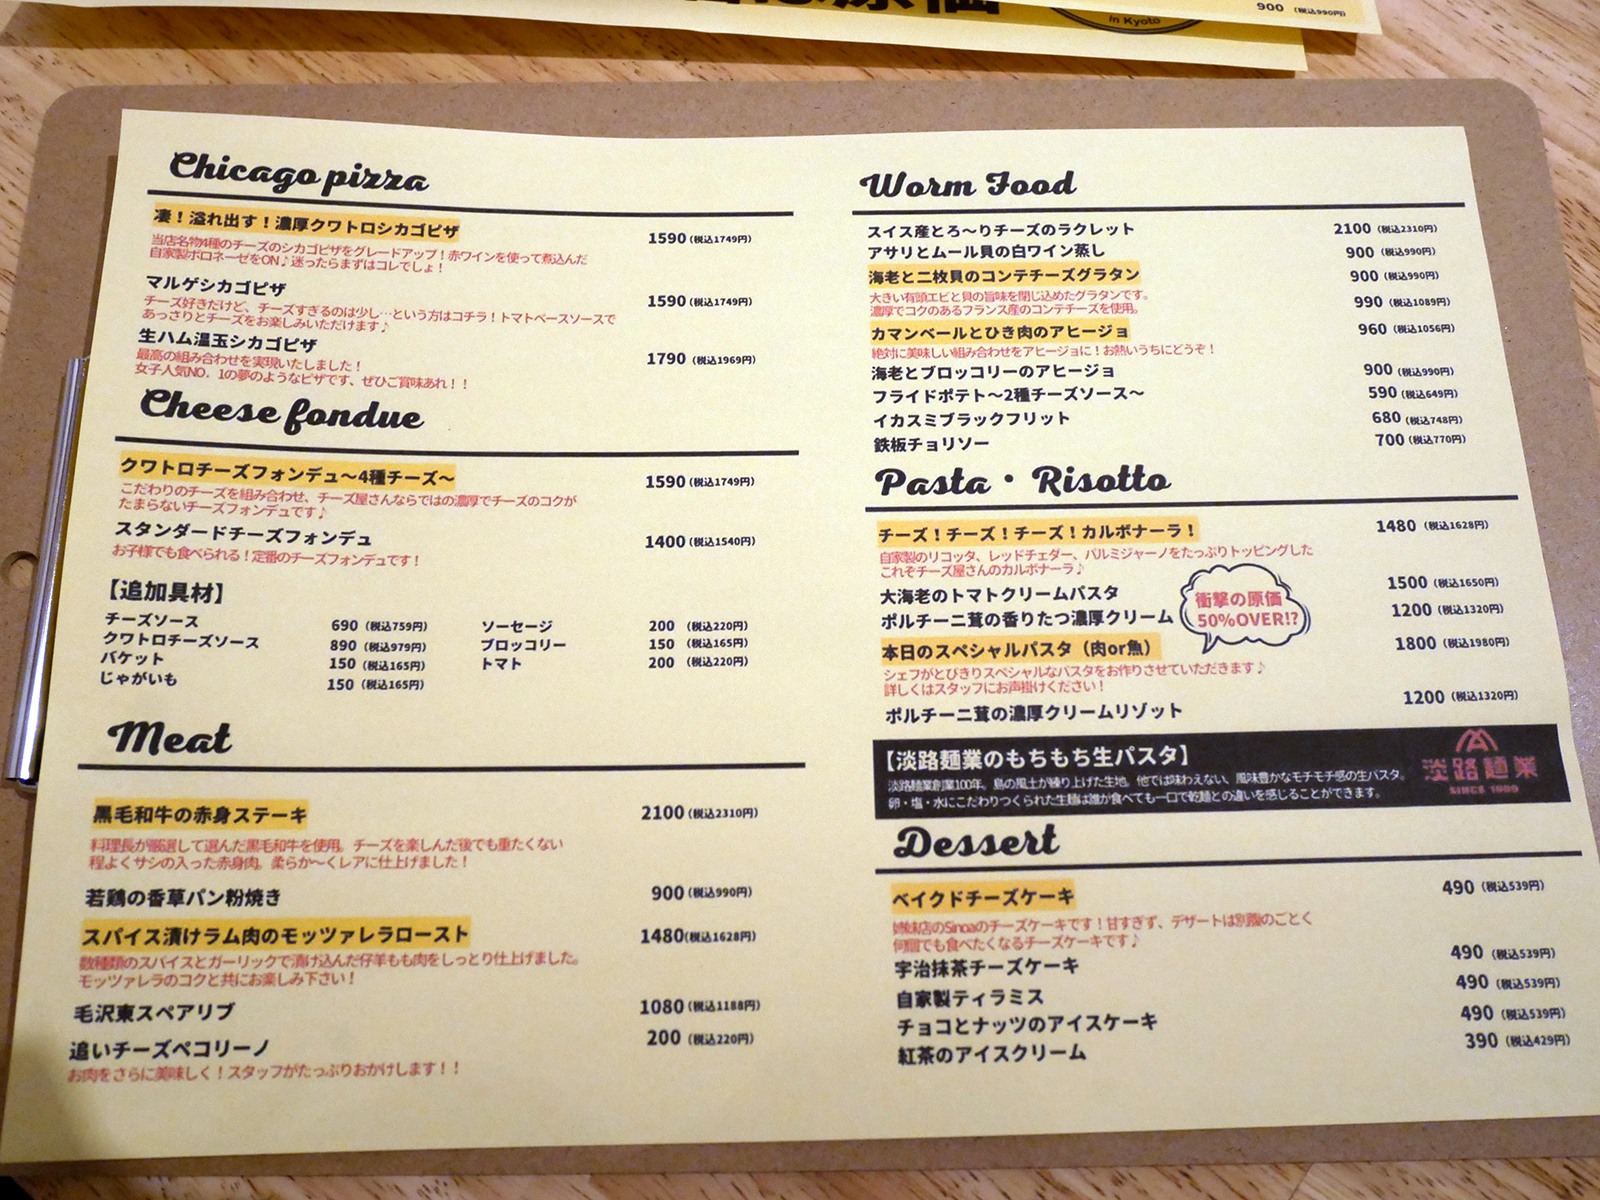 in Kyoto
900 (税込990円)
Chicago pizza
凄！溢れ出す！濃厚クワトロシカゴピザ 1590(税込1749円)
当店名物4種のチーズのシカゴピザをグレードアップ！赤ワインを使って煮込んだ
自家製ボロネーゼをON♪迷ったらまずはコレでしょ！
マルゲシカゴピザ 1590(税込1749円)
チーズ好きだけど、チーズすぎるのは少し…という方はコチラ！トマトベースソースで
あっさりとチーズをお楽しみいただけます♪
生ハム温玉シカゴピザ 1790 (税込1969円)
最高の組み合わせを実現いたしました！
女子人気NO.1の夢のようなピザです、ぜひご賞味あれ！！
Cheese fondue
クワトロチーズフォンデュ〜4種チーズ〜 1590(税込1749円)
こだわりのチーズを組み合わせ、チーズ屋さんならではの濃厚でチーズのコクが
たまらないチーズフォンデュです♪
スタンダードチーズフォンデュ 1400(税込1540円)
お子様でも食べられる！定番のチーズフォンデュです！
【追加具材】
チーズソース 690 (税込759円)
クワトロチーズソース 890 (税込979円)
バケット 150 (税込165円)
じゃがいも 150 (税込165円)
ソーセージ 200 (税込220円)
ブロッコリー 150 (税込165円)
トマト 200 (税込220円)
Meat
黒毛和牛の赤身ステーキ 2100(税込2310円)
料理長が厳選して選んだ黒毛和牛を使用。チーズを楽しんだ後でも重たくない
程よくサシの入った赤身肉。柔らか〜くレアに仕上げました！
若鶏の香草パン粉焼き 900(税込990円)
スパイス漬けラム肉のモッツァレラロースト 1480(税込1628円)
数種類のスパイスとガーリックで漬け込んだ仔羊もも肉をしっとり仕上げました。
モッツァレラのコクと共にお楽しみ下さい！
毛沢東スペアリブ 1080(税込1188円)
追いチーズペコリーノ 200 (税込220円)
お肉をさらに美味しく！スタッフがたっぷりおかけします！！
Worm Food
スイス産とろ〜りチーズのラクレット 2100(税込2310円)
アサリとムール貝の白ワイン蒸し 900 (税込990円)
海老と二枚貝のコンテチーズグラタン 900 (税込990円)
大きい有頭エビと貝の旨味を閉じ込めたグラタンです。 990 (税込1089円)
濃厚でコクのあるフランス産のコンテチーズを使用。
カマンベールとひき肉のアヒージョ 960 (税込1056円)
絶対に美味しい組み合わせをアヒージョに！お熱いうちにどうぞ！
海老とブロッコリーのアヒージョ 900 (税込990円)
フライドポテト〜2種チーズソース〜 590 (税込649円)
イカスミブラックフリット 680 (税込748円)
鉄板チョリソー 700 (税込770円)
Pasta・Risotto
チーズ！チーズ！チーズ！カルボナーラ！ 1480 (税込1628円)
自家製のリコッタ、レッドチェダー、パルミジャーノをたっぷりトッピングした
これぞチーズ屋さんのカルボナーラ♪
大海老のトマトクリームパスタ 1500 (税込1650円)
ポルチーニ茸の香りたつ濃厚クリーム 1200 (税込1320円)
衝撃の原価
50%OVER!?
本日のスペシャルパスタ（肉or魚） 1800 (税込1980円)
シェフがとびきりスペシャルなパスタをお作りさせていただきます♪
詳しくはスタッフにお声掛けください！
ポルチーニ茸の濃厚クリームリゾット 1200 (税込1320円)
【淡路麺業のもちもち生パスタ】
淡路麺業創業100年。島の風土が練り上げた生地。他では味わえない、風味豊かなモチモチ感の生パスタ。
卵・塩・水にこだわりつくられた生麺は誰が食べても一口で乾麺との違いを感じることができます。
淡路麺業
SINCE 1909
Dessert
ベイクドチーズケーキ 490 (税込539円)
姉妹店のSinoaのチーズケーキです！甘すぎず、デザートは別腹のごとく
何個でも食べたくなるチーズケーキです♪
宇治抹茶チーズケーキ 490 (税込539円)
自家製ティラミス 490 (税込539円)
チョコとナッツのアイスケーキ 490 (税込539円)
紅茶のアイスクリーム 390 (税込429円)